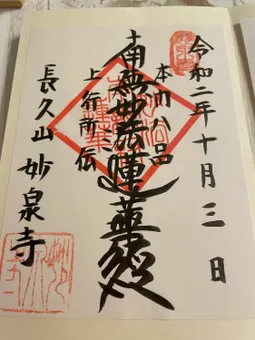 令和二年十月三日
本門八品
南無妙法蓮華経
上行所伝
長久山 妙泉寺